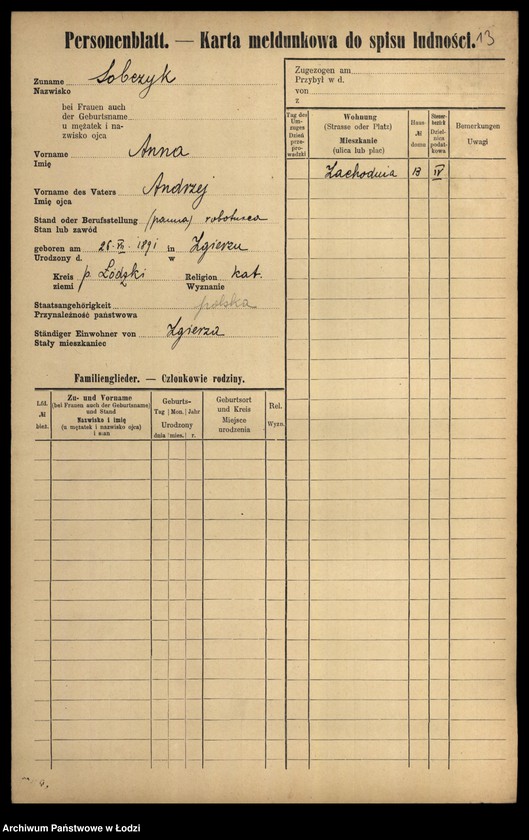 Personenblatt. — Karta meldunkowa do spisu ludności. 13
Zuname Sobczyk
Nazwisko
bei Frauen auch
der Geburtsname
u mężatek i na-
zwisko ojca
Vorname Anna
Imię
Vorname des Vaters Andrzej
Imię ojca
Stand oder Berufsstellung (panna) robotnica
Stan lub zawód
geboren am 26. VII. 1891 in Zgierzu
Urodzony d. w
Kreis p. Łódzki Religion kat.
ziemi Wyznanie
Staatsangehörigkeit polska
Przynależność państwowa
Ständiger Einwohner von Zgierza
Stały mieszkaniec
Zugezogen am
Przybył w d.
von
z
Tag des Um-zuges
Dzień prze-pro-wadzki
Wohnung
(Strasse oder Platz)
Mieszkanie
(ulica lub plac)
Haus-
№
domu
Steuer-bezirk
Dziel-nica podat-kowa
Bemerkungen
Uwagi
Zachodnia 13 IV
Familienglieder. — Członkowie rodziny.
Lfd.
№
bież.
Zu- und Vorname
(bei Frauen auch der Geburtsname)
und Stand
Nazwisko i imię
(u mężatek i nazwisko ojca)
i stan
Geburts-
Tag Mon. Jahr
Urodzony
dnia mies. r.
Geburtsort
und Kreis
Miejsce
urodzenia
Rel.
Wyzn.
Archiwum Państwowe w Łodzi